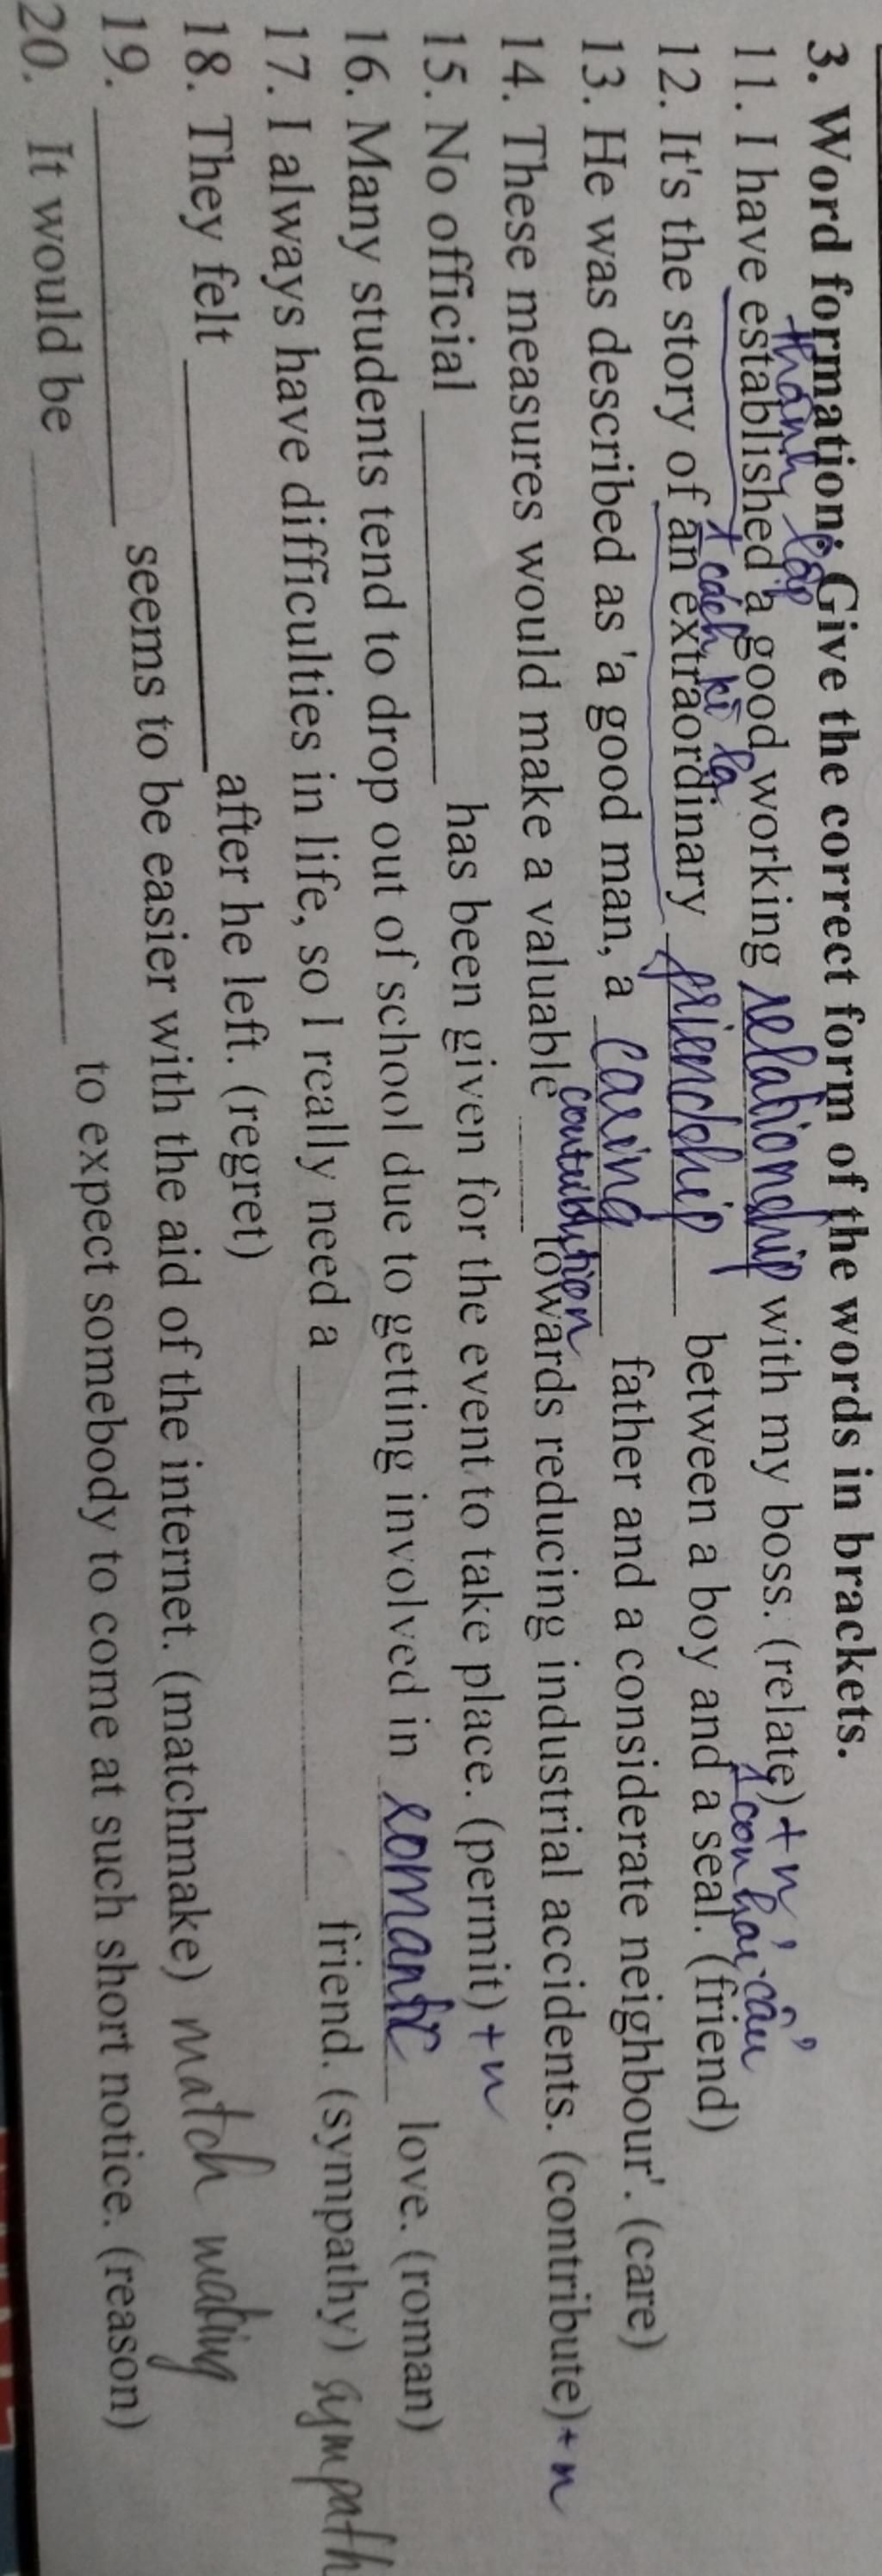 3. Word formation: Give the correct form of the words in brackets.
thành lập
11. I have established a good working relationship with my boss. (relate) + n
1 cách kì lạ 1 con hải cẩu
12. It's the story of an extraordinary friendship between a boy and a seal. (friend)
13. He was described as 'a good man, a caring father and a considerate neighbour'. (care)
contribution
14. These measures would make a valuable ____ towards reducing industrial accidents. (contribute) + n
15. No official ____ has been given for the event to take place. (permit) + n
16. Many students tend to drop out of school due to getting involved in romantic love. (roman)
17. I always have difficulties in life, so I really need a ____ friend. (sympathy) sympath
18. They felt ____ after he left. (regret)
19. ____ seems to be easier with the aid of the internet. (matchmake) match making
20. It would be ____ to expect somebody to come at such short notice. (reason)